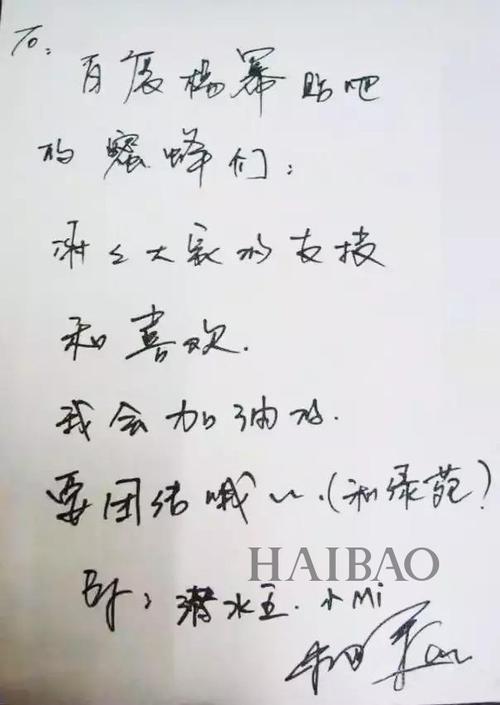 To:
百度杨幂贴吧
的蜜蜂们:
谢谢大家的支援
和喜欢.
我会加油的.
要团结哦~.(和绿苑)
HAIBAO
By: 潜水王.小Mi